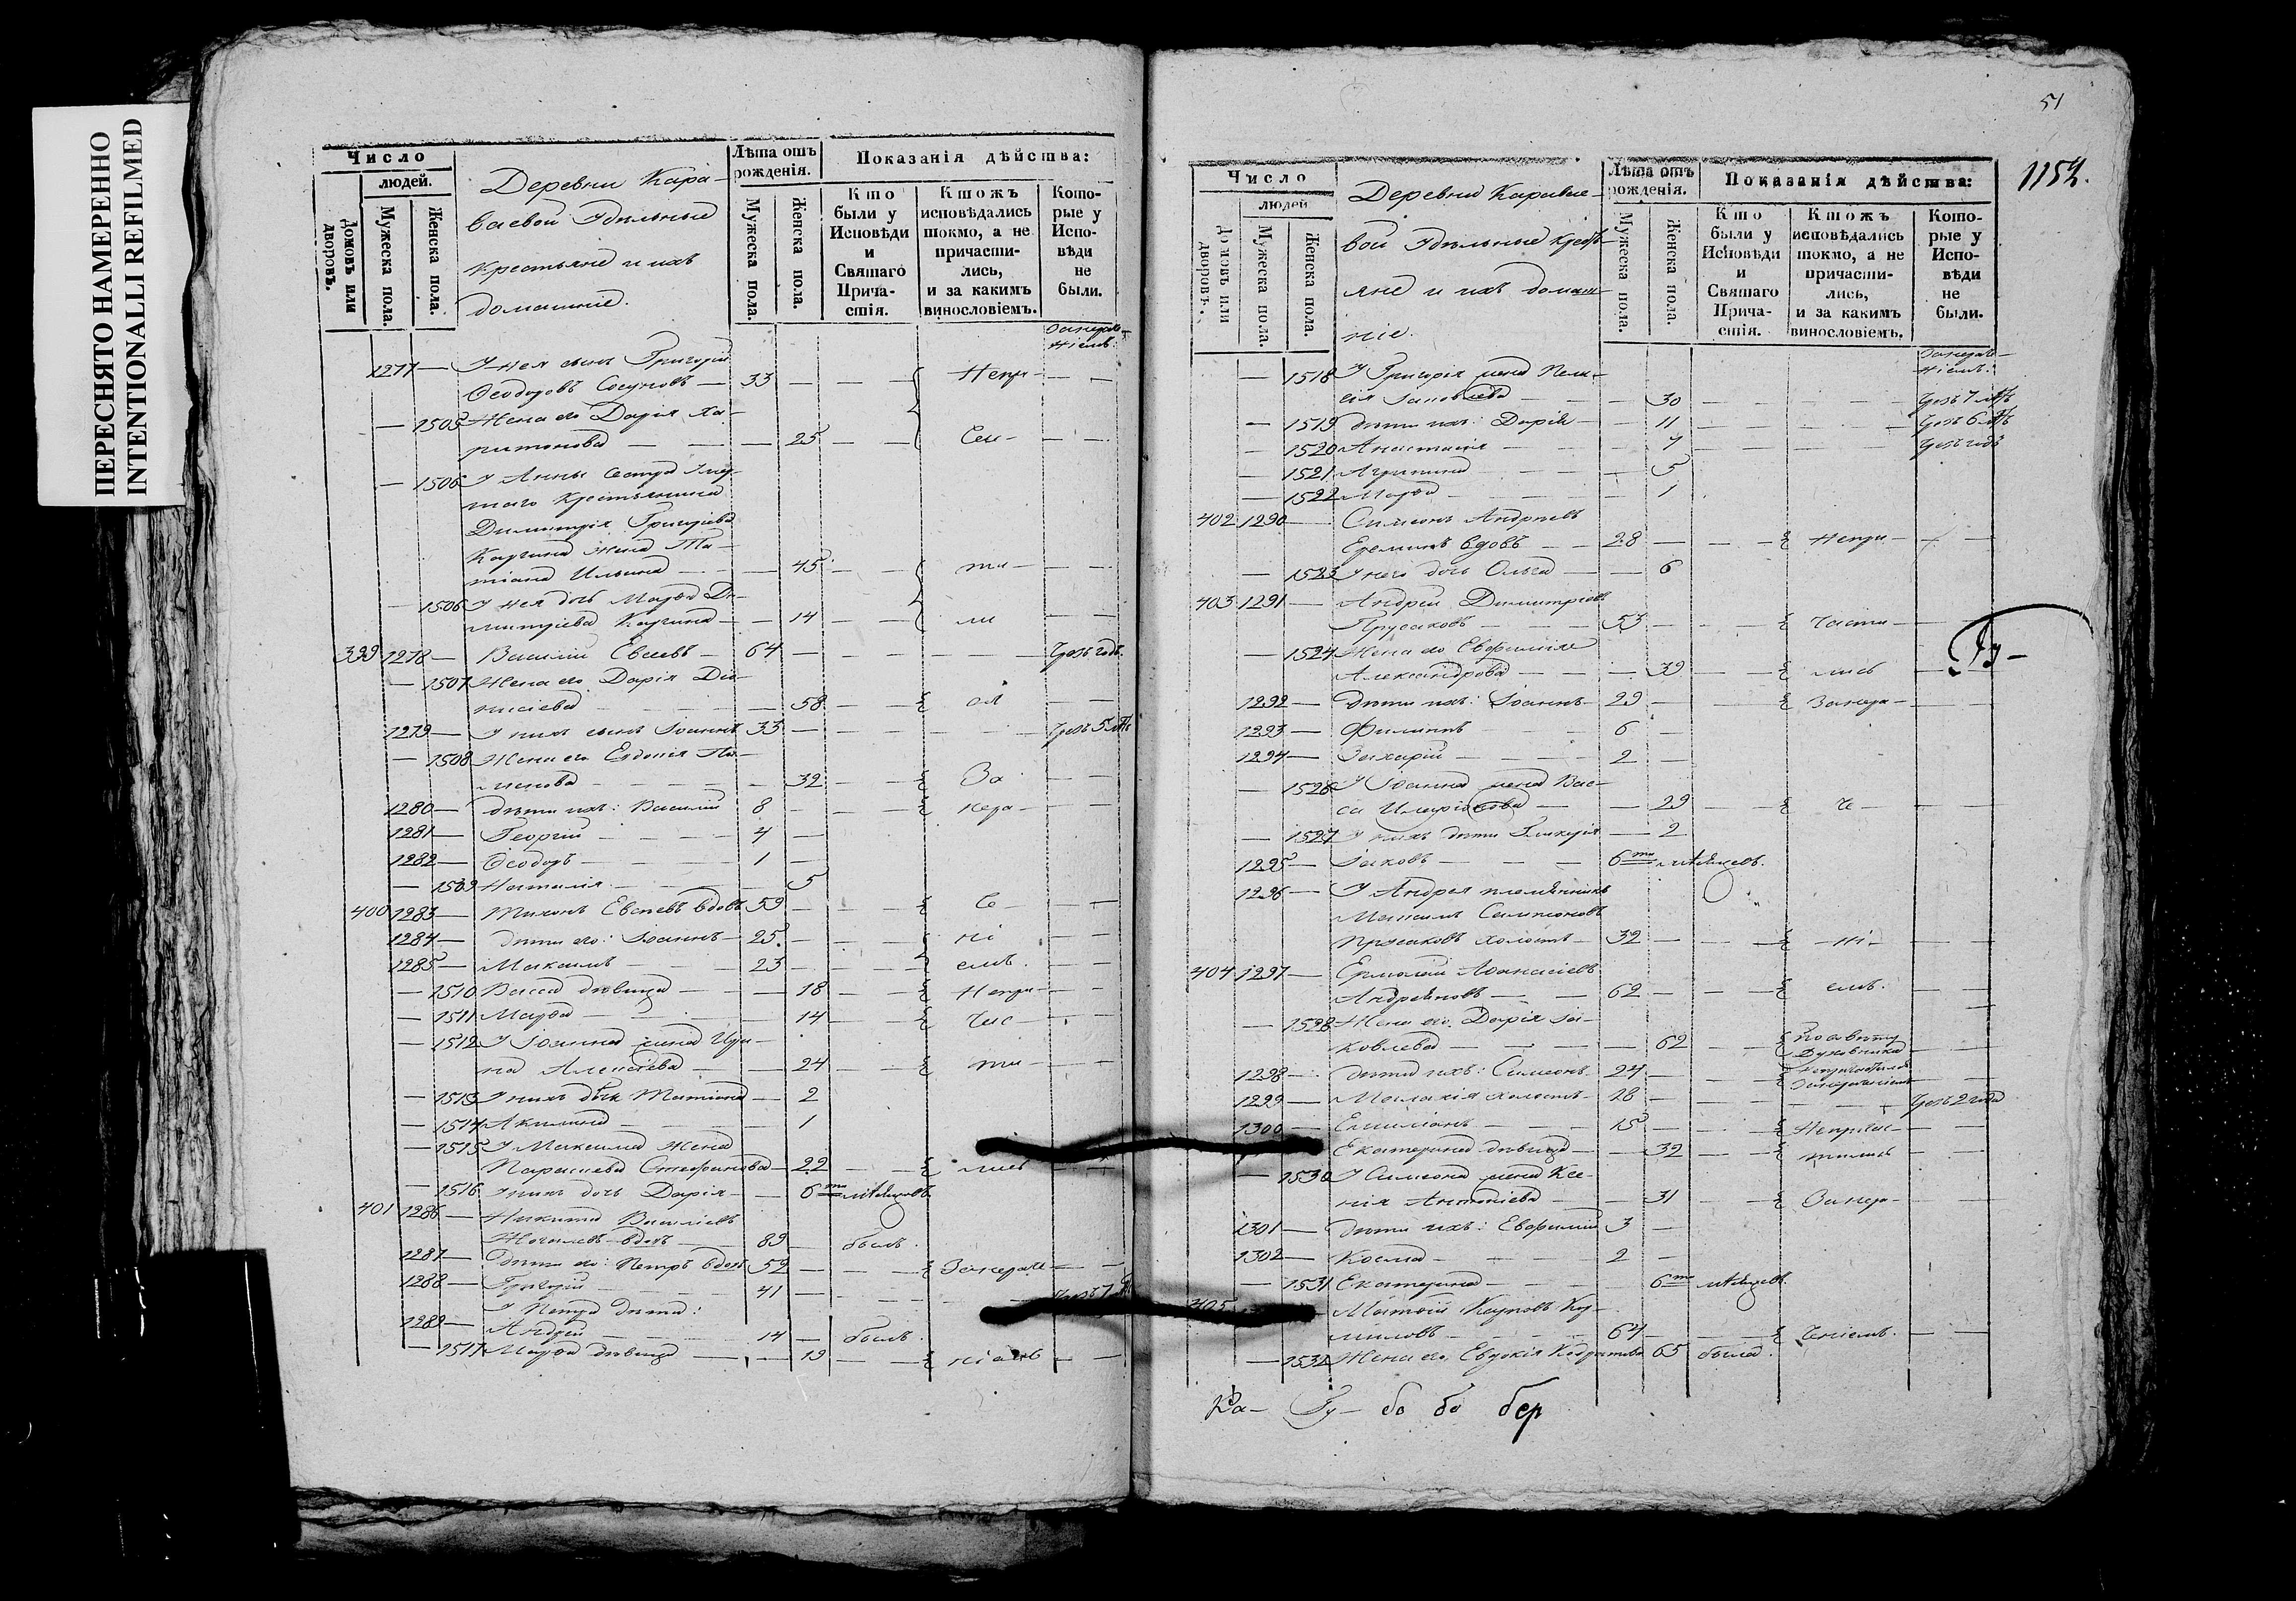 ПЕРЕСНЯТО НАМЕРЕННО
INTENTIONALLI REFILMED
Число
людей.
Домовъ или дворовъ.
Мужеска пола.
Женска пола.
Деревни Кара-
ваевой Удѣльные
Крестьяне и ихъ
домашніе.
Лѣта отъ рожденія.
Мужеска пола.
Женска пола.
Показанія дѣйства:
Кто были у Исповѣди и Святаго Причастія.
Ктожъ исповѣдались токмо, а не причастились, и за какимъ винословіемъ.
Которые у Исповѣди не были.
1277 — У нея сынъ Григорій
Ѳеодоровъ — 33 — — Непри- — —
— 1505 Жена его Дарія Ха-
ритонова — — — 25 — — Сен- — —
— 1506 У Анны сестра умер-
шаго Крестьянина
Димитрія Григорьева
жена Та-
тіана Ильина — — 45 — — ти — —
— 1506 У нея дочь Марѳа Ди-
митріева — — 14 — — ли — —
399 1278 — Василій Евсеевъ — 64 — — — — Чрезъ годъ.
— 1507 Жена его Дарія Діо-
нисіева — — 58 — — — —
1279 — У нихъ сынъ Іоаннъ 33 — — — — Чрезъ 5 лѣтъ
— 1508 Жена его Евдокія
— 32 — — За — —
1280 — Дѣти ихъ: Василій 8 — — нера- — —
1281 — Георгій — — — 4 —
1282 — Ѳеодоръ — — — 1 —
— 1509 Наталія — — — 5
400 1283 — Тихонъ Евсеевъ вдовъ 59 — — — —
1284 — Дѣти его: Іоаннъ — 25 — — ні — —
1285 — Максимъ — — 23 — — емъ. — —
— 1510 Васса дѣвица — — 18 — — Непри- — —
— 1511 Марѳа — — — 14 — — час- — —
— 1512 У Іоанна жена Ири-
на Алексіева — — 24 — — ти — —
— 1513 У нихъ дочь Татіана — 2
— 1514 Акилина — — — 1
— 1515 У Максима Жена
Параскева Стефанова — 22 — — лись — —
— 1516 У нихъ дочь Дарія — — 6ти мѣсяцовъ.
401 1286 — Никита Василіевъ
вдовъ — 89 — былъ.
1287 — Дѣти его: Петръ вдовъ 52 — — Занераче — —
1288 — Григорій — — 41 — — — —
У Петра дѣти:
1289 — Андрей — — — 14 — былъ.
— 1517 Марѳа дѣвица — — 19 — — ніемъ — —
51
1152.
Число
людей
Домовъ или дворовъ.
Мужеска пола.
Женска пола.
Деревни Каравае-
вой Удѣльные Кресть-
яне и ихъ домаш-
ніе.
Лѣта отъ рожденія.
Мужеска пола.
Женска пола.
Показанія дѣйства:
Кто были у Исповѣди и Святаго Причастія.
Ктожъ исповѣдались токмо, а не причастились, и за какимъ винословіемъ.
Которые у Исповѣди не были.
— 1518 У Григорія жена Пела-
гія Іаковлева — — — 30 — — — Чрезъ 7 лѣтъ
— 1519 Дѣти ихъ: Дарія — — 11 — — — Чрезъ 6 лѣтъ
— 1520 Анастасія — — — 7 — — — Чрезъ годъ
— 1521 Агрипина — — — 5
— 1522 Марѳа — — — 1
402 1290 — Симеонъ Андреевъ
Ереминъ вдовъ — — 28 — — Непри- — —
— 1523 У него дочь Ольга — — 6
403 1291 — Андрей Димитріевъ
Прусаковъ — — 53 — — части — —
— 1524 Жена его Евфимія
Александрова — — — 39 — — лись — Гу-
1292 — Дѣти ихъ: Іоаннъ — 29 — — Занера- — —
1293 — Филиппъ — — — 6 —
1294 — Захарій — — — 2 —
— 1526 У Іоанна жена Вас-
са — — 29 — — че — — —
— 1527 У нихъ дѣти Гликерія — 2
1295 — Іаковъ — — — 6ти мѣсяцевъ.
1296 — У Андрея племянникъ
Максимъ Симеоновъ
Прусаковъ холостъ — 32 — — ні- — —
404 1297 — Ермолай Аѳанасіевъ
Андреяновъ — — 62 — — емъ. — —
— 1528 Жена его Дарія Іа-
ковлева — — — 62 — По совѣту Духовника — —
1298 — Дѣти ихъ: Симеонъ 24 — —
1299 — Малахія холостъ — 18 — — — — Чрезъ 2 года
1300 — Емиліанъ — — 15 — — Непричас- — —
Екатерина дѣвица — — 32 — — тились — —
— 1530 У Симеона жена Ксе-
нія Антоніева — — 31 — — Занера- — —
1301 — Дѣти ихъ: Евфимій 3 —
1302 — Косма — — — 2 —
— 1531 Екатерина — — — 6ти мѣсяцевъ.
405 — Матѳій Карповъ
64 — — ченіемъ. — —
— 1532 Жена его Евдокія Кодратова 65 была.
Ка- Гу- бо бо бер